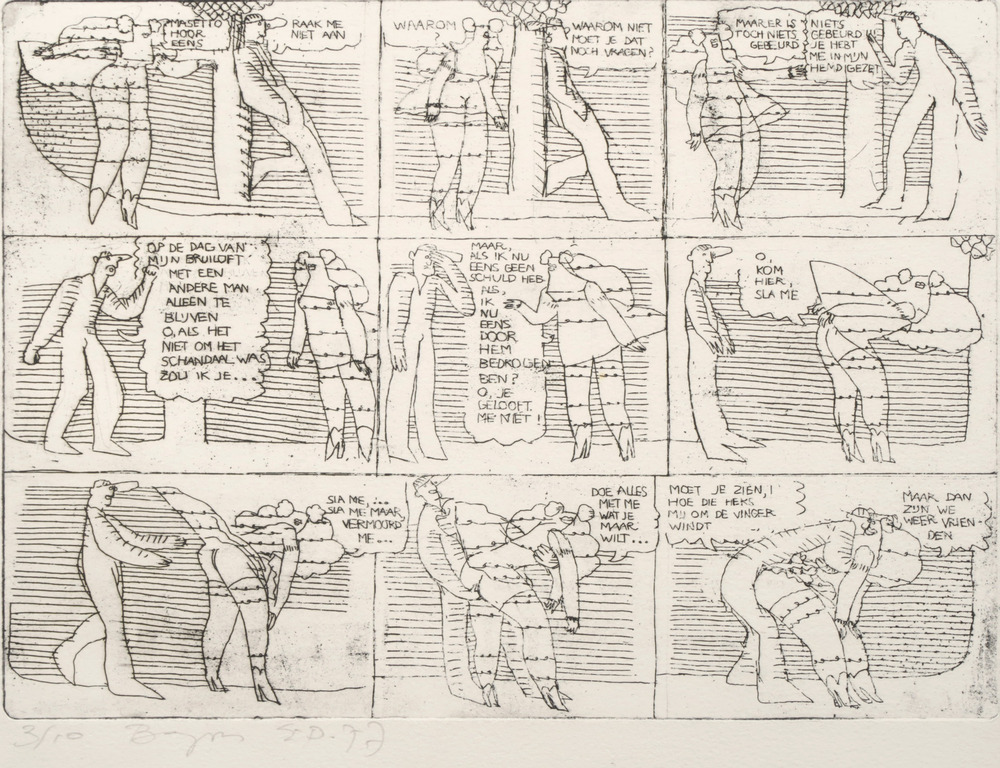 MASETTO
HOOR
EENS
RAAK ME
NIET AAN
WAAROM
?
WAAROM NIET
MOET JE DAT
NOCH VRAGEN?
MAAR ER IS
TOCH NIETS
GEBEURD
NIETS
GEBEURD!!
JE HEBT
ME IN MIJN
HEMD GEZET
OP DE DAG VAN
MIJN BRUILOFT
MET EEN
ANDERE MAN
ALLEEN TE
BLIJVEN
O, ALS HET
NIET OM HET
SCHANDAAL WAS
ZOU IK JE...
MAAR,
ALS IK NU
EENS GEEN
SCHULD HEB
ALS,
IK
NU
EENS
DOOR
HEM
BEDROGEN
BEN?
O, JE
GELOOFT
ME NIET!
O,
KOM
HIER,
SLA ME
SLA ME,...
SLA ME MAAR
VERMOORD
ME...
DOE ALLES
MET ME
WAT JE
MAAR
WILT...
MOET JE ZIEN,!
HOE DIE HEKS
MIJ OM DE VINGER
WINDT
MAAR DAN
ZIJN WE
WEER VRIEN-
DEN
3/10 E.D. 77